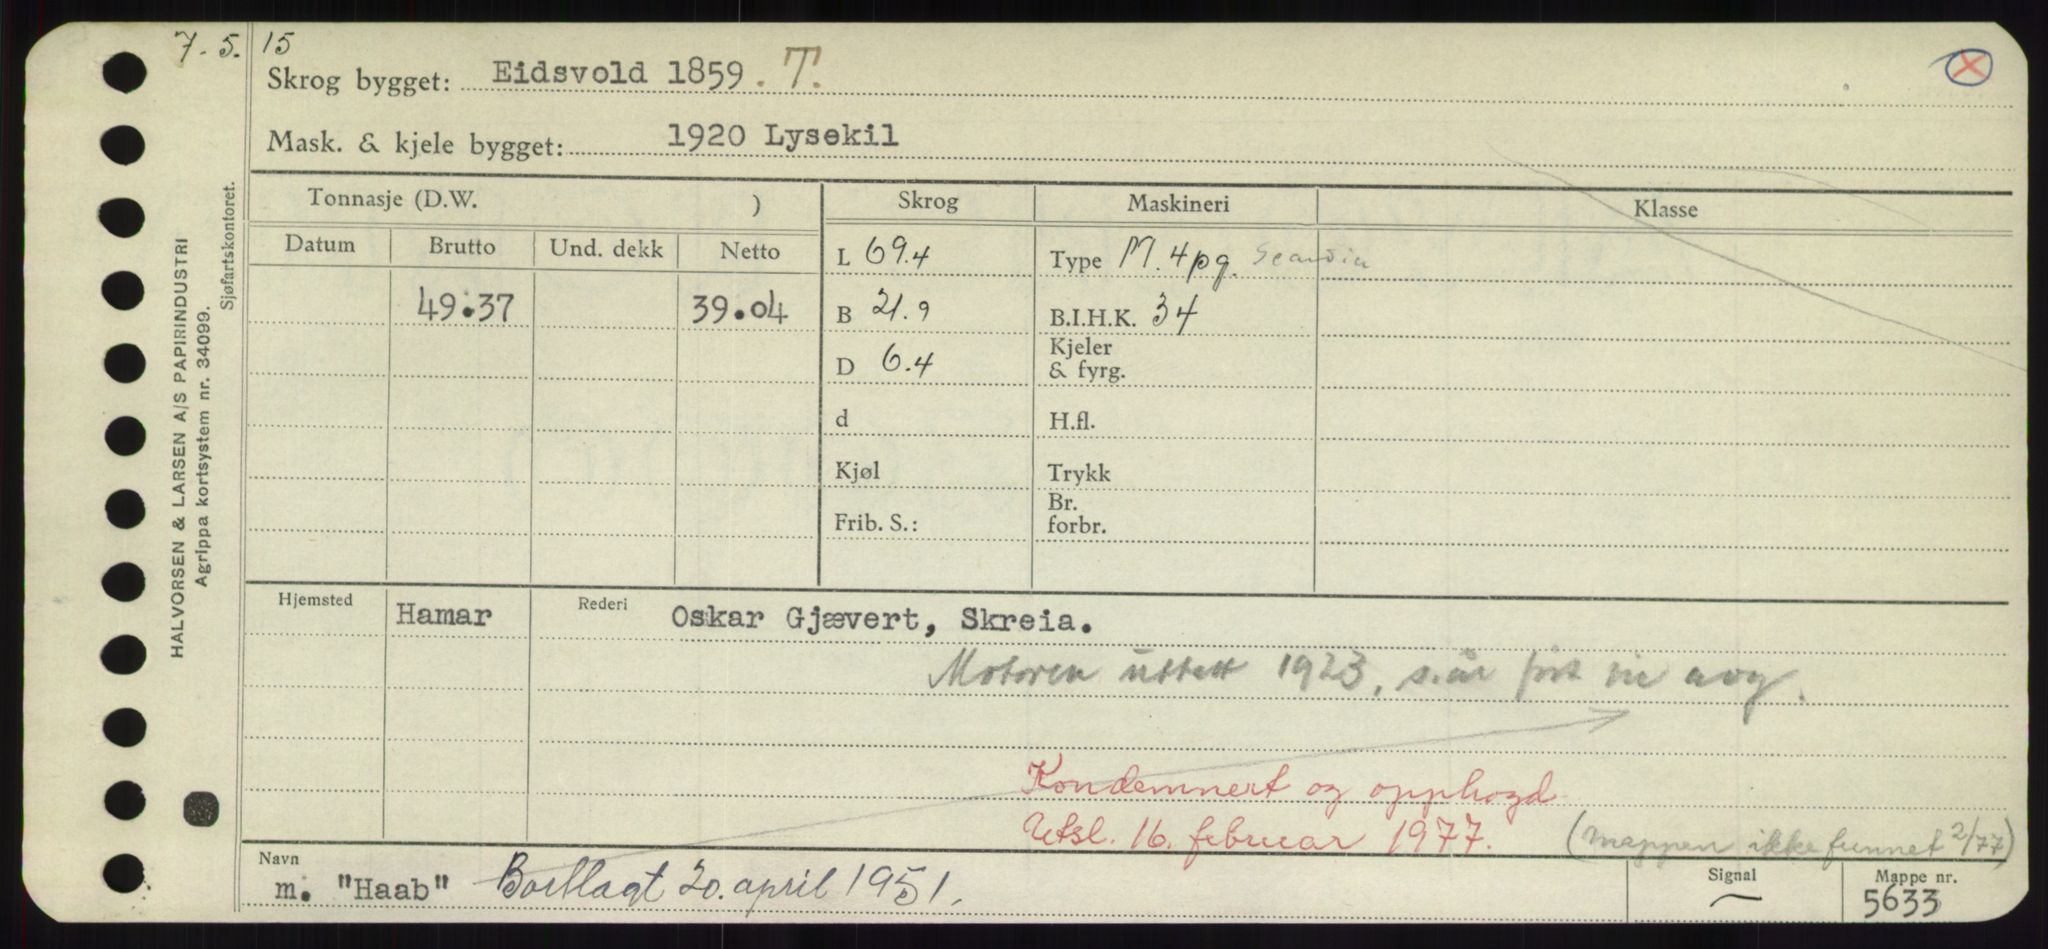 7. 5. 15
Skrog bygget: Eidsvold 1859. T.
Mask. & kjele bygget: 1920 Lysekil
Tonnasje (D.W. )
Skrog Maskineri Klasse
Datum Brutto Und. dekk Netto
L 69.4 Type M. 4pg. Scandia
49.37 39.04 B 21.9 B.I.H.K. 34
D 6.4 Kjeler & fyrg.
d H.fl.
Kjøl Trykk
Frib. S.: Br. forbr.
Hjemsted Hamar Rederi Oskar Gjævert, Skreia.
Motoren uttatt 1923, s.år
Kondemnert og opphogd
Utsl. 16. februar 1977. (Mappen ikke funnet 2/77)
Navn m. "Haab" Bortlagt 20. april 1951.
Signal — Mappe nr. 5633
HALVORSEN & LARSEN A/S PAPIRINDUSTRI
Agrippa kortsystem nr. 34099.
Sjøfartskontoret.